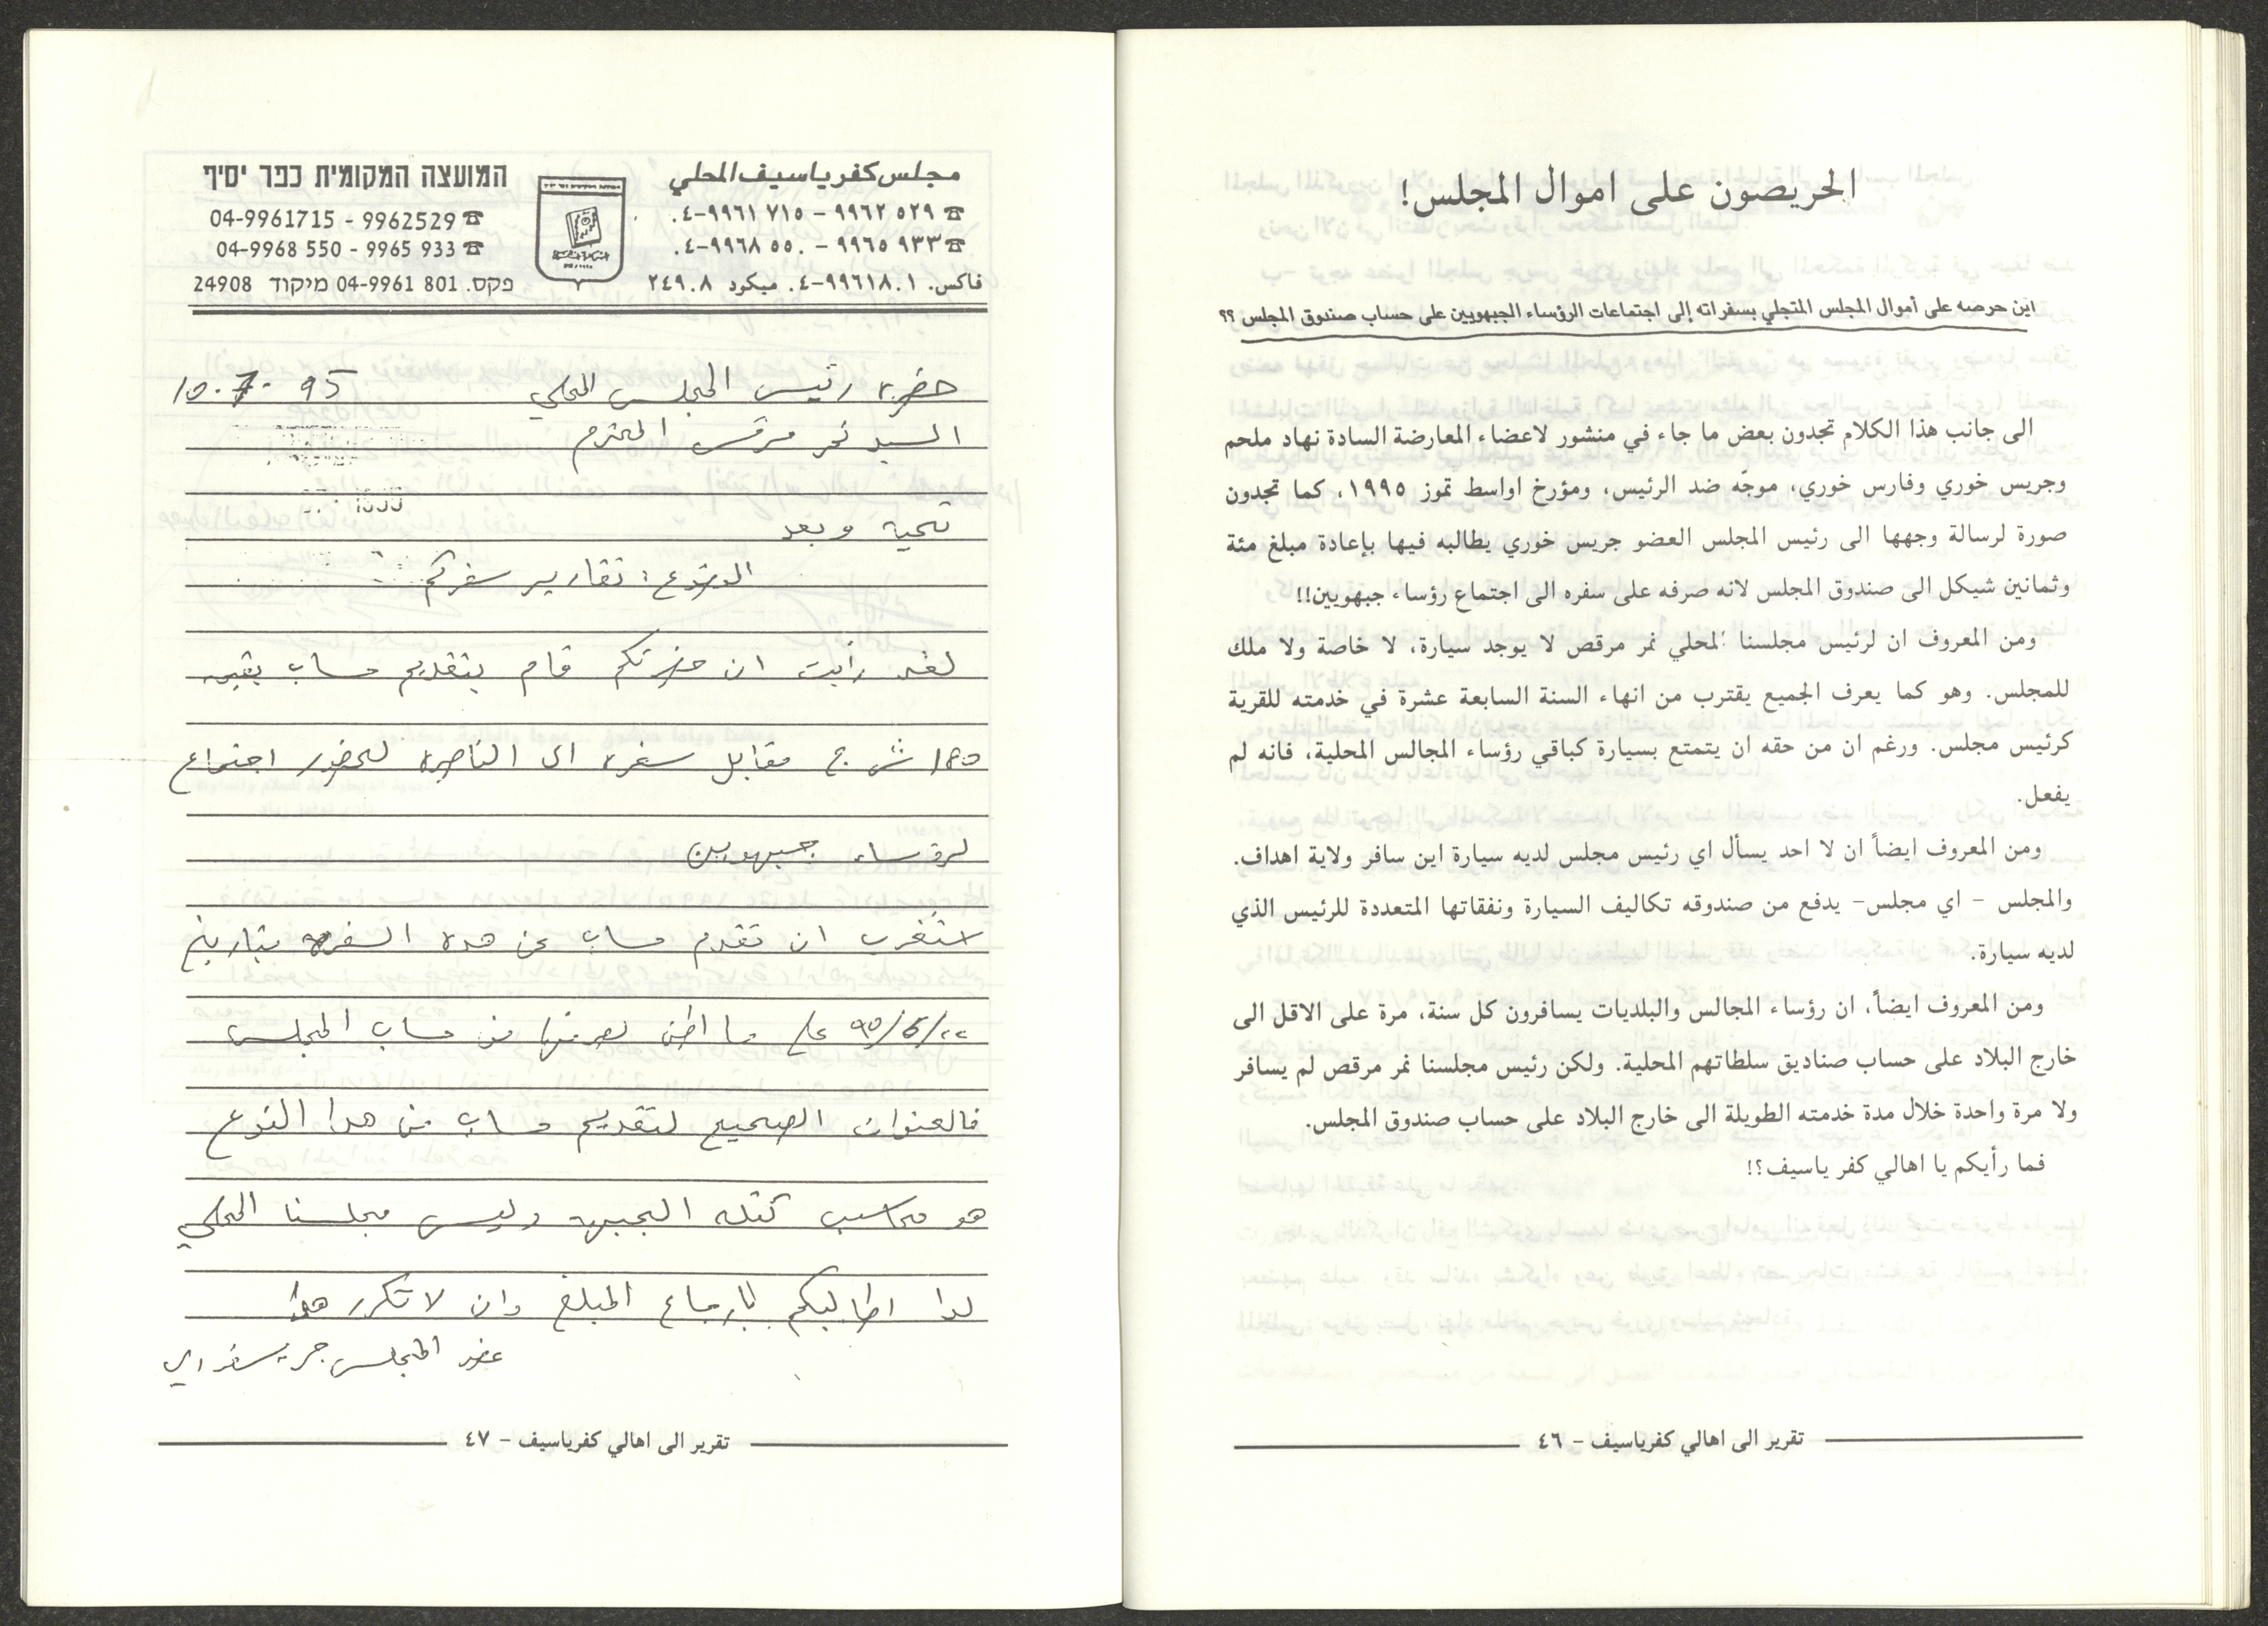 الحريصون على اموال المجلس!
اين حرصه على أموال المجلس المتجلي بسفراته إلى اجتماعات الرؤساء الجبهويين على حساب صندوق المجلس ؟؟
الى جانب هذا الكلام تجدون بعض ما جاء في منشور لاعضاء المعارضة السادة نهاد ملحم
وجريس خوري وفارس خوري، موجّه ضد الرئيس، ومؤرخ اواسط تموز ١٩٩٥، كما تجدون
صورة لرسالة وجهها الى رئيس المجلس العضو جريس خوري يطالبه فيها بإعادة مبلغ مئة
وثمانين شيكل الى صندوق المجلس لانه صرفه على سفره الى اجتماع رؤساء جبهويين!!
ومن المعروف ان لرئيس مجلسنا المحلي نمر مرقص لا يوجد سيارة، لا خاصة ولا ملك
للمجلس. وهو كما يعرف الجميع يقترب من انهاء السنة السابعة عشرة في خدمته للقرية
كرئيس مجلس. ورغم ان من حقه ان يتمتع بسيارة كباقي رؤساء المجالس المحلية، فانه لم
يفعل.
ومن المعروف ايضاً ان لا احد يسأل اي رئيس مجلس لديه سيارة اين سافر ولاية اهداف.
والمجلس - اي مجلس- يدفع من صندوقه تكاليف السيارة ونفقاتها المتعددة للرئيس الذي
لديه سيارة.
ومن المعروف ايضاً، ان رؤساء المجالس والبلديات يسافرون كل سنة، مرة على الاقل الى
خارج البلاد على حساب صناديق سلطاتهم المحلية. ولكن رئيس مجلسنا نمر مرقص لم يسافر
ولا مرة واحدة خلال مدة خدمته الطويلة الى خارج البلاد على حساب صندوق المجلس.
فما رأيكم يا اهالي كفر ياسيف؟!
تقرير الى اهالي كفرياسيف - ٤٦
مجلس كفر ياسيف المحلي
☎ ٩٩٦٢٥٢٩ - ٩٩٦١٧١٥-٠٤
☎ ٩٩٦٥٩٣٣ - ٩٩٦٨٥٥٠-٠٤
فاكس. ٩٩٦١٨٠١-٠٤ ميكود ٢٤٩٠٨
המועצה המקומית כפר יסיף
☎ 04-9961715 - 9962529
☎ 04-9968 550 - 9965 933
פקס. 04-9961 801 מיקוד 24908
حضرة رئيس المجلس المحلي 10.7.95
السيد نمر مرقس المحترم
تحية وبعد
الموضوع: تقارير سفركم
لقد رأيت ان حضرتكم قام بتقديم حساب بقيمة
١٨٥ ش ج مقابل سفره الى الناصرة لحضور اجتماع
لرؤساء جبهويين
استغرب ان تقدم حساب عن هذه السفره بتاريخ
على ما اظن لصرفها من حساب المجلس
فالعنوان الصحيح لتقديم حساب من هذا النوع
هو محاسب كتلة الجبهه وليس مجلسنا المحلي
لذا اطالبكم بارجاع المبلغ وان لا تكرر هذا
عضو المجلس جريس خوري
تقرير الى اهالي كفرياسيف - ٤٧